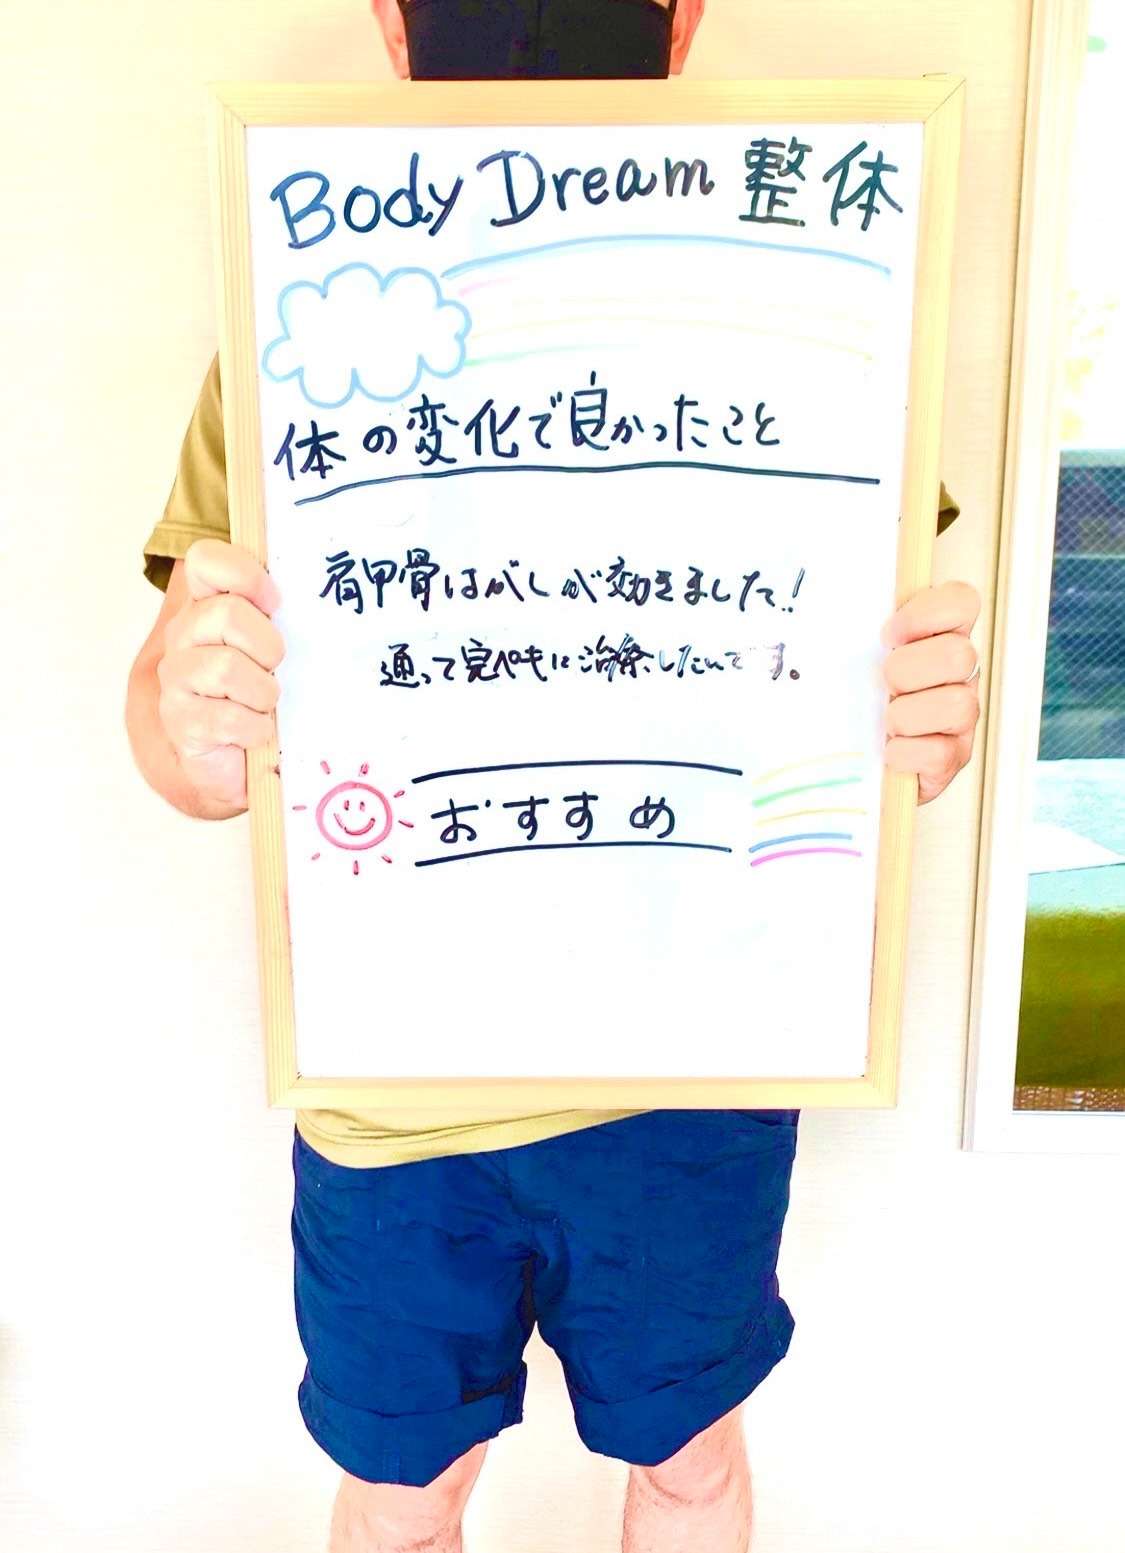 Body Dream 整体
体の変化で良かったこと
肩甲骨はがしが効きました!
通って完ぺきに治療したいです。
おすすめ